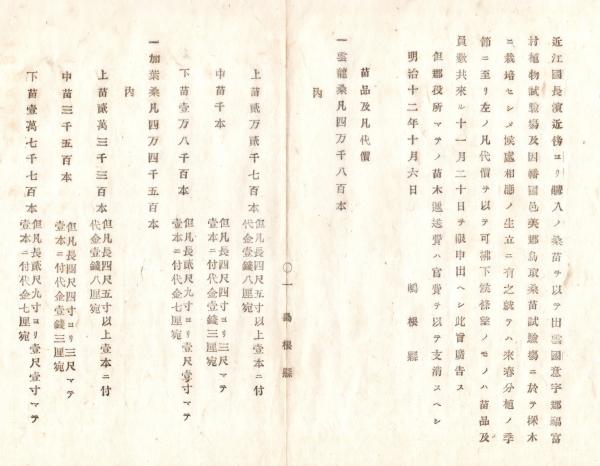 近江國長濱近傍ヨリ購入ノ桑苗ヲ以テ出雲國意宇郡福富
村植物試驗塲及因幡國邑美郡鳥取桑苗試驗塲ニ於テ採木
ニ栽培セシメ候處相應ノ生立ニ有之就テハ來春分植ノ季
節ニ至リ左ノ凡代價ヲ以テ可拂下候條望ノモノハ苗品及
員數共來ル十一月二十日ヲ限申出ヘシ此旨廣告ス
但郡役所マテノ苗木遞送費ハ官費ヲ以テ支消スヘシ
明治十二年十月六日　島根縣
苗品及凡代價
一雲龍桑凡四万千八百本
內
〇一　島根縣
上苗貳万貳千七百本　但凡長四尺五寸以上壹本ニ付代金壹錢八厘宛
中苗千本　但凡長四尺四寸ヨリ三尺マテ壹本ニ付代金壹錢三厘宛
下苗壹万八千百本　但凡長貳尺九寸ヨリ壹尺壹寸マテ壹本ニ付代金七厘宛
一加葉桑凡四万四千五百本
內
上苗貳萬三千三百本　但凡長四尺五寸以上壹本ニ付代金壹錢八厘宛
中苗三千五百本　但凡長四尺四寸ヨリ三尺マテ壹本ニ付代金壹錢三厘宛
下苗壹萬七千七百本　但凡長貳尺九寸ヨリ壹尺壹寸マテ壹本ニ付代金七厘宛